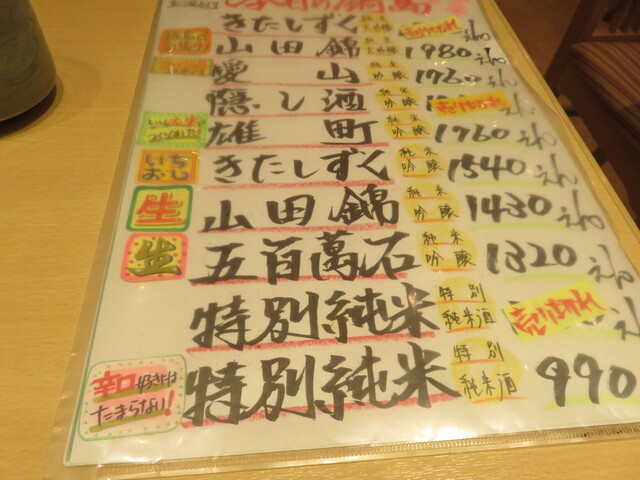 の鍋島
きたしずく 純米大吟醸 売り切れ
山田錦 純米大吟醸 1980えん
愛山 純米吟醸 1760えん
隠し酒 純米吟醸 売り切れ
雄町 純米吟醸 1760えん
いちおし きたしずく 純米吟醸 1540えん
生 山田錦 純米吟醸 1430えん
生 五百萬石 純米吟醸 1320えん
特別純米 特別純米酒 売り切れ
辛口好きにはたまらない! 特別純米 特別純米酒 990